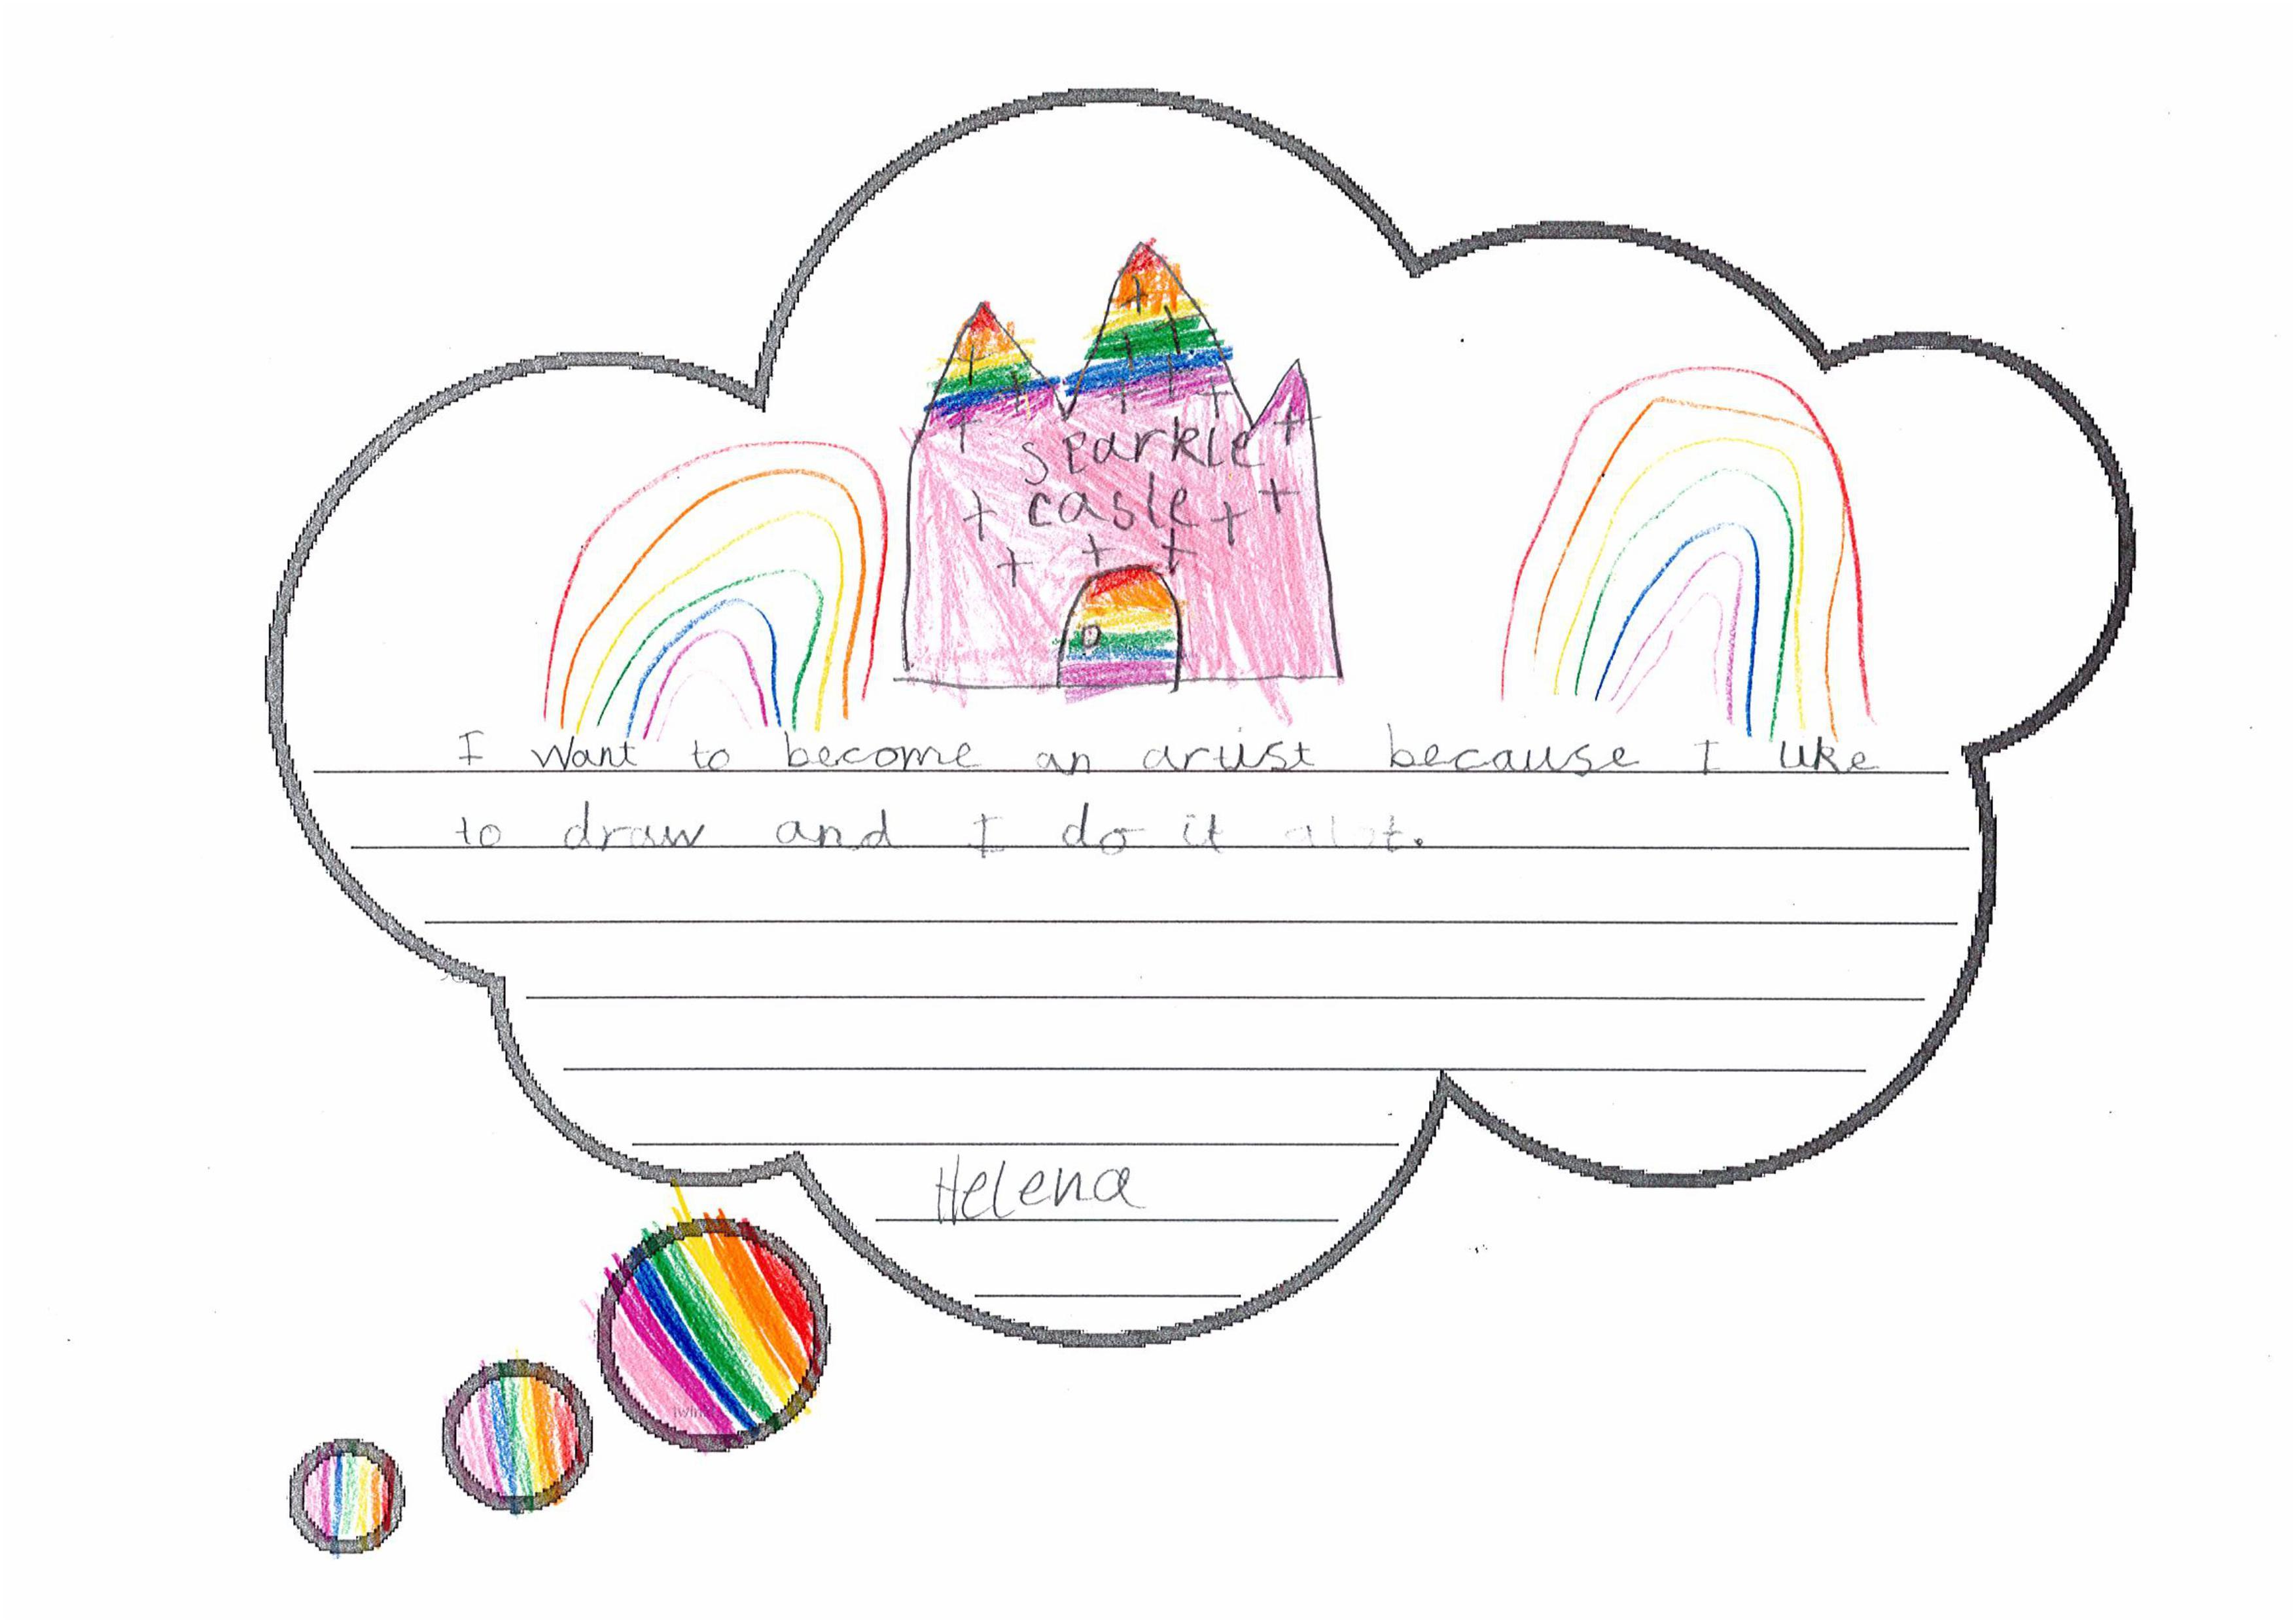 sparkle
casle
I want to become an artist because I like
to draw and I do it alot.
Helena